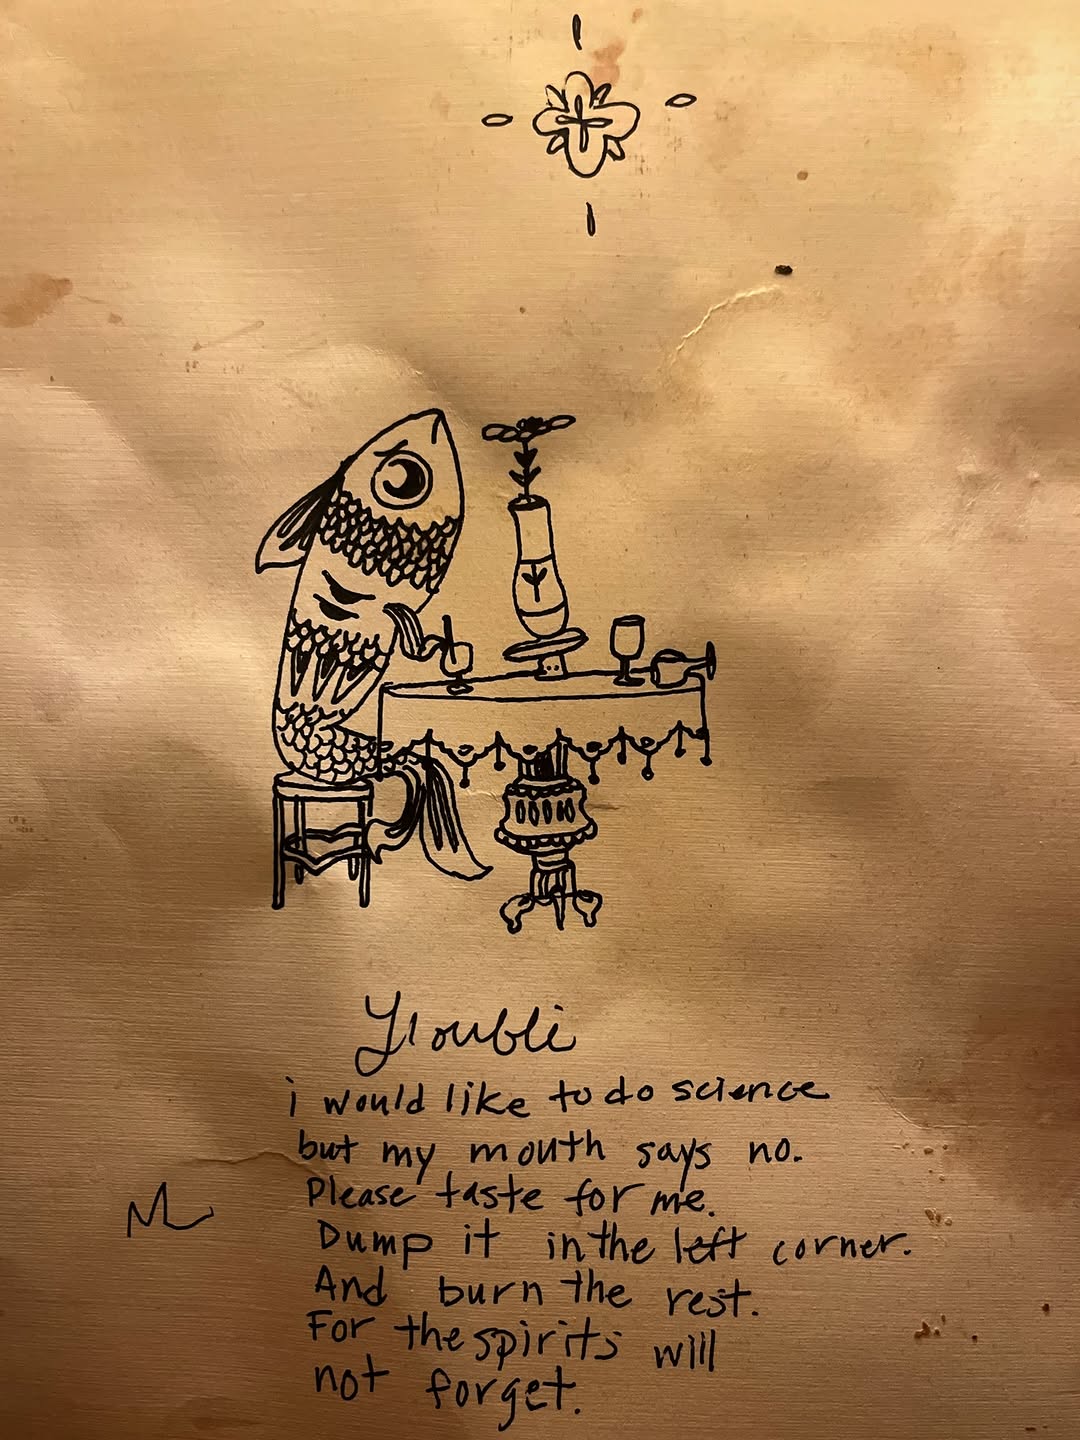 i would like to do science
but my mouth says no.
Please taste for me.
Dump it in the left corner.
And burn the rest.
For the spirits will
not forget.